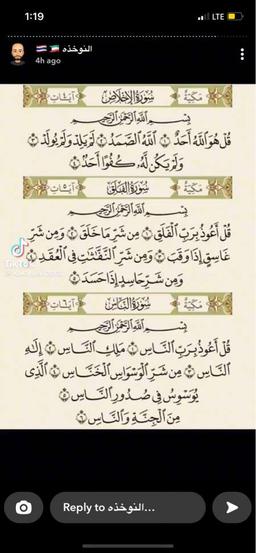 1:19
LTE
النوخذه 🇰🇼 🇹🇭
4h ago
مكية سورة الإخلاص
بسم الله الرحمن الرحيم
قُلْ هُوَ اللَّهُ أَحَدٌ ١ اللَّهُ الصَّمَدُ ٢ لَمْ يَلِدْ وَلَمْ يُولَدْ ٣
وَلَمْ يَكُن لَّهُ كُفُوًا أَحَدٌ ٤
مكية سورة الفلق
بسم الله الرحمن الرحيم
قُلْ أَعُوذُ بِرَبِّ الْفَلَقِ ١ مِن شَرِّ مَا خَلَقَ ٢ وَمِن شَرِّ
غَاسِقٍ إِذَا وَقَبَ ٣ وَمِن شَرِّ النَّفَّاثَاتِ فِي الْعُقَدِ ٤
وَمِن شَرِّ حَاسِدٍ إِذَا حَسَدَ ٥
TikTok
مكية سورة الناس
بسم الله الرحمن الرحيم
قُلْ أَعُوذُ بِرَبِّ النَّاسِ ١ مَلِكِ النَّاسِ ٢ إِلَٰهِ
النَّاسِ ٣ مِن شَرِّ الْوَسْوَاسِ الْخَنَّاسِ ٤ الَّذِي
يُوَسْوِسُ فِي صُدُورِ النَّاسِ ٥
مِنَ الْجِنَّةِ وَالنَّاسِ ٦
Reply to النوخذه...